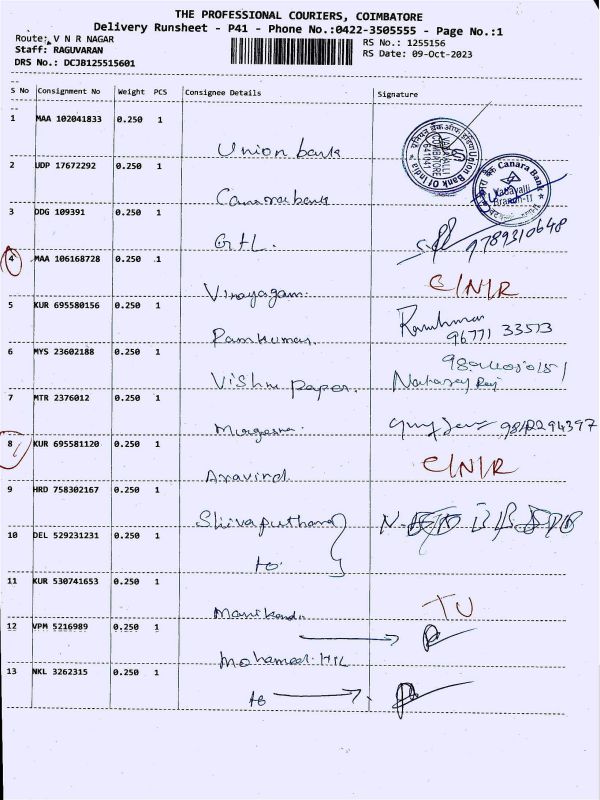 THE PROFESSIONAL COURIERS, COIMBATORE
Delivery Runsheet - P41 - Phone No.:0422-3505555 - Page No.:1
Route: V N R NAGAR
RS No.: 1255156
Staff: RAGUVARAN
RS Date: 09-Oct-2023
DRS No.: DCJB125515601
S No Consignment No Weight PCS Consignee Details Signature
1 MAA 102041833 0.250 1
Union bank
Union Bank Of India
2 UDP 17672292 0.250 1
Canara bank
Canara Bank
3 DDG 109391 0.250 1
GHL. 9789310648
4 MAA 106168728 0.250 1
Vinayagam. C/N/R
5 KUR 695580156 0.250 1
Ramkumar. Ramkumar
96771 33513
6 MYS 23602188 0.250 1
Vishnu paper. Nataraj
7 MTR 2376012 0.250 1
8 KUR 695581120 0.250 1
Aravind C/N/R
9 HRD 758302167 0.250 1
10 DEL 529231231 0.250 1
to
11 KUR 530741653 0.250 1
TU
12 VPM 5216989 0.250 1
Mohamed.
13 NKL 3262315 0.250 1
to